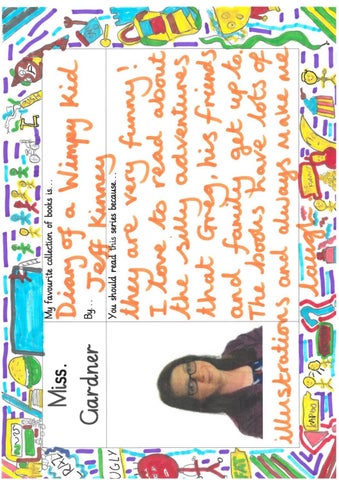 Miss.
Gardner
My favourite collection of books is...
Diary of a Wimpy Kid
By...
Jeff Kinney
You should read this series because...
they are very funny!
I love to read about
the silly adventures
that Greg, his friends
and family get up to.
The books have lots of
illustrations and always make me
laugh!
UGLY
FAT